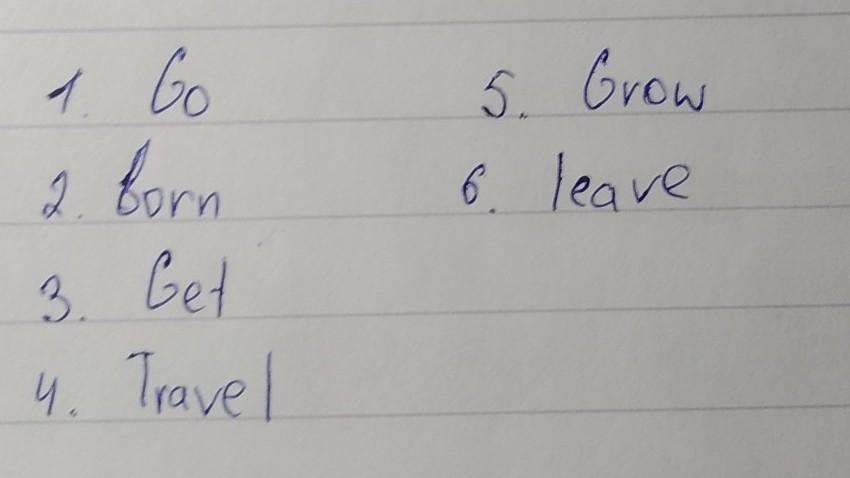 1. Go
2. born
3. Get
4. Travel
5. Grow
6. leave